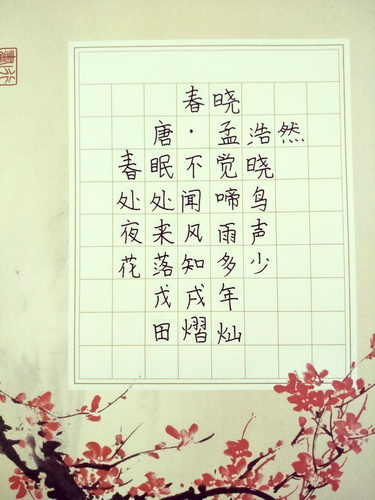 春晓
唐·孟浩然
春眠不觉晓
处处闻啼鸟
夜来风雨声
花落知多少
戊戌年
田熠灿